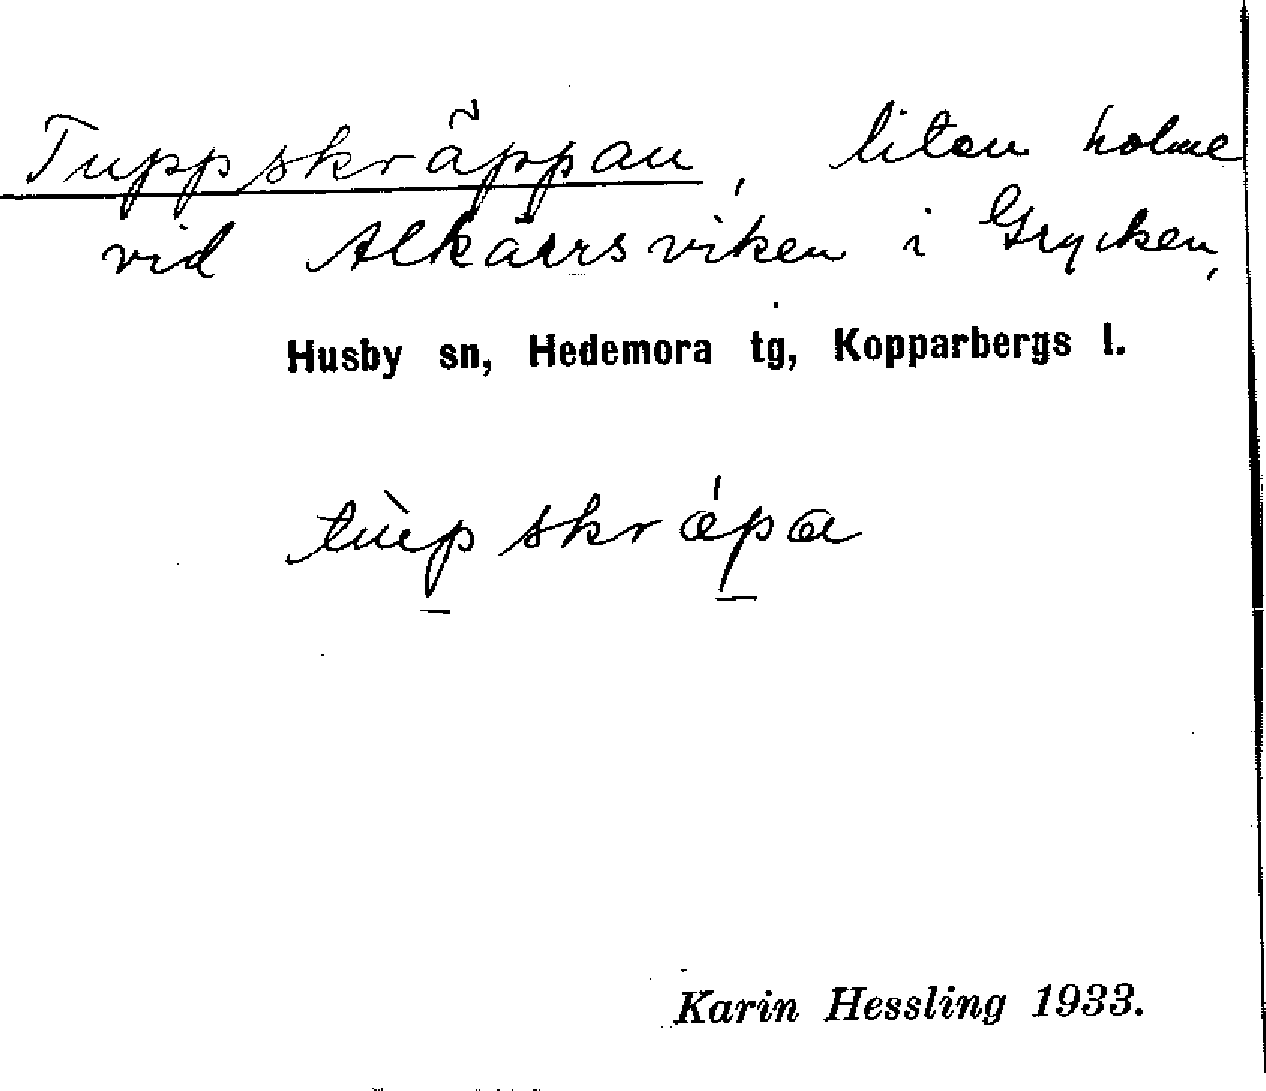 Tuppskräppan, liten holme
vid Alkärrsviken i Grycken,
Husby sn, Hedemora tg, Kopparbergs l.
tùp̲skrǽp̲a
Karin Hessling 1933.